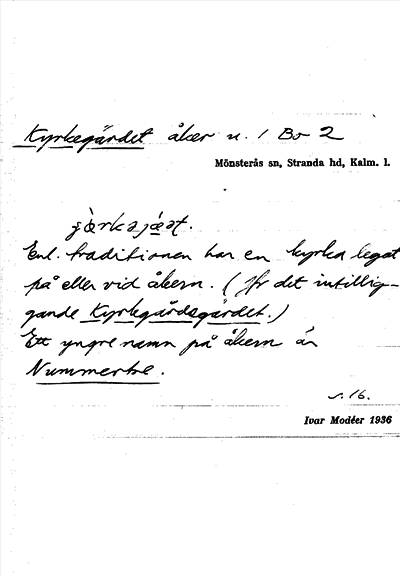 Kyrkegärdet åker u. 1 Bo 2
Mönsterås sn, Stranda hd, Kalm. l.
Enl. traditionen har en kyrka legat
på eller vid åkern. (Jfr det intillig-
gande Kyrkgårdsgärdet.)
Ett yngre namn på åkern är
Nummertre.
s. 16.
Ivar Modéer 1936